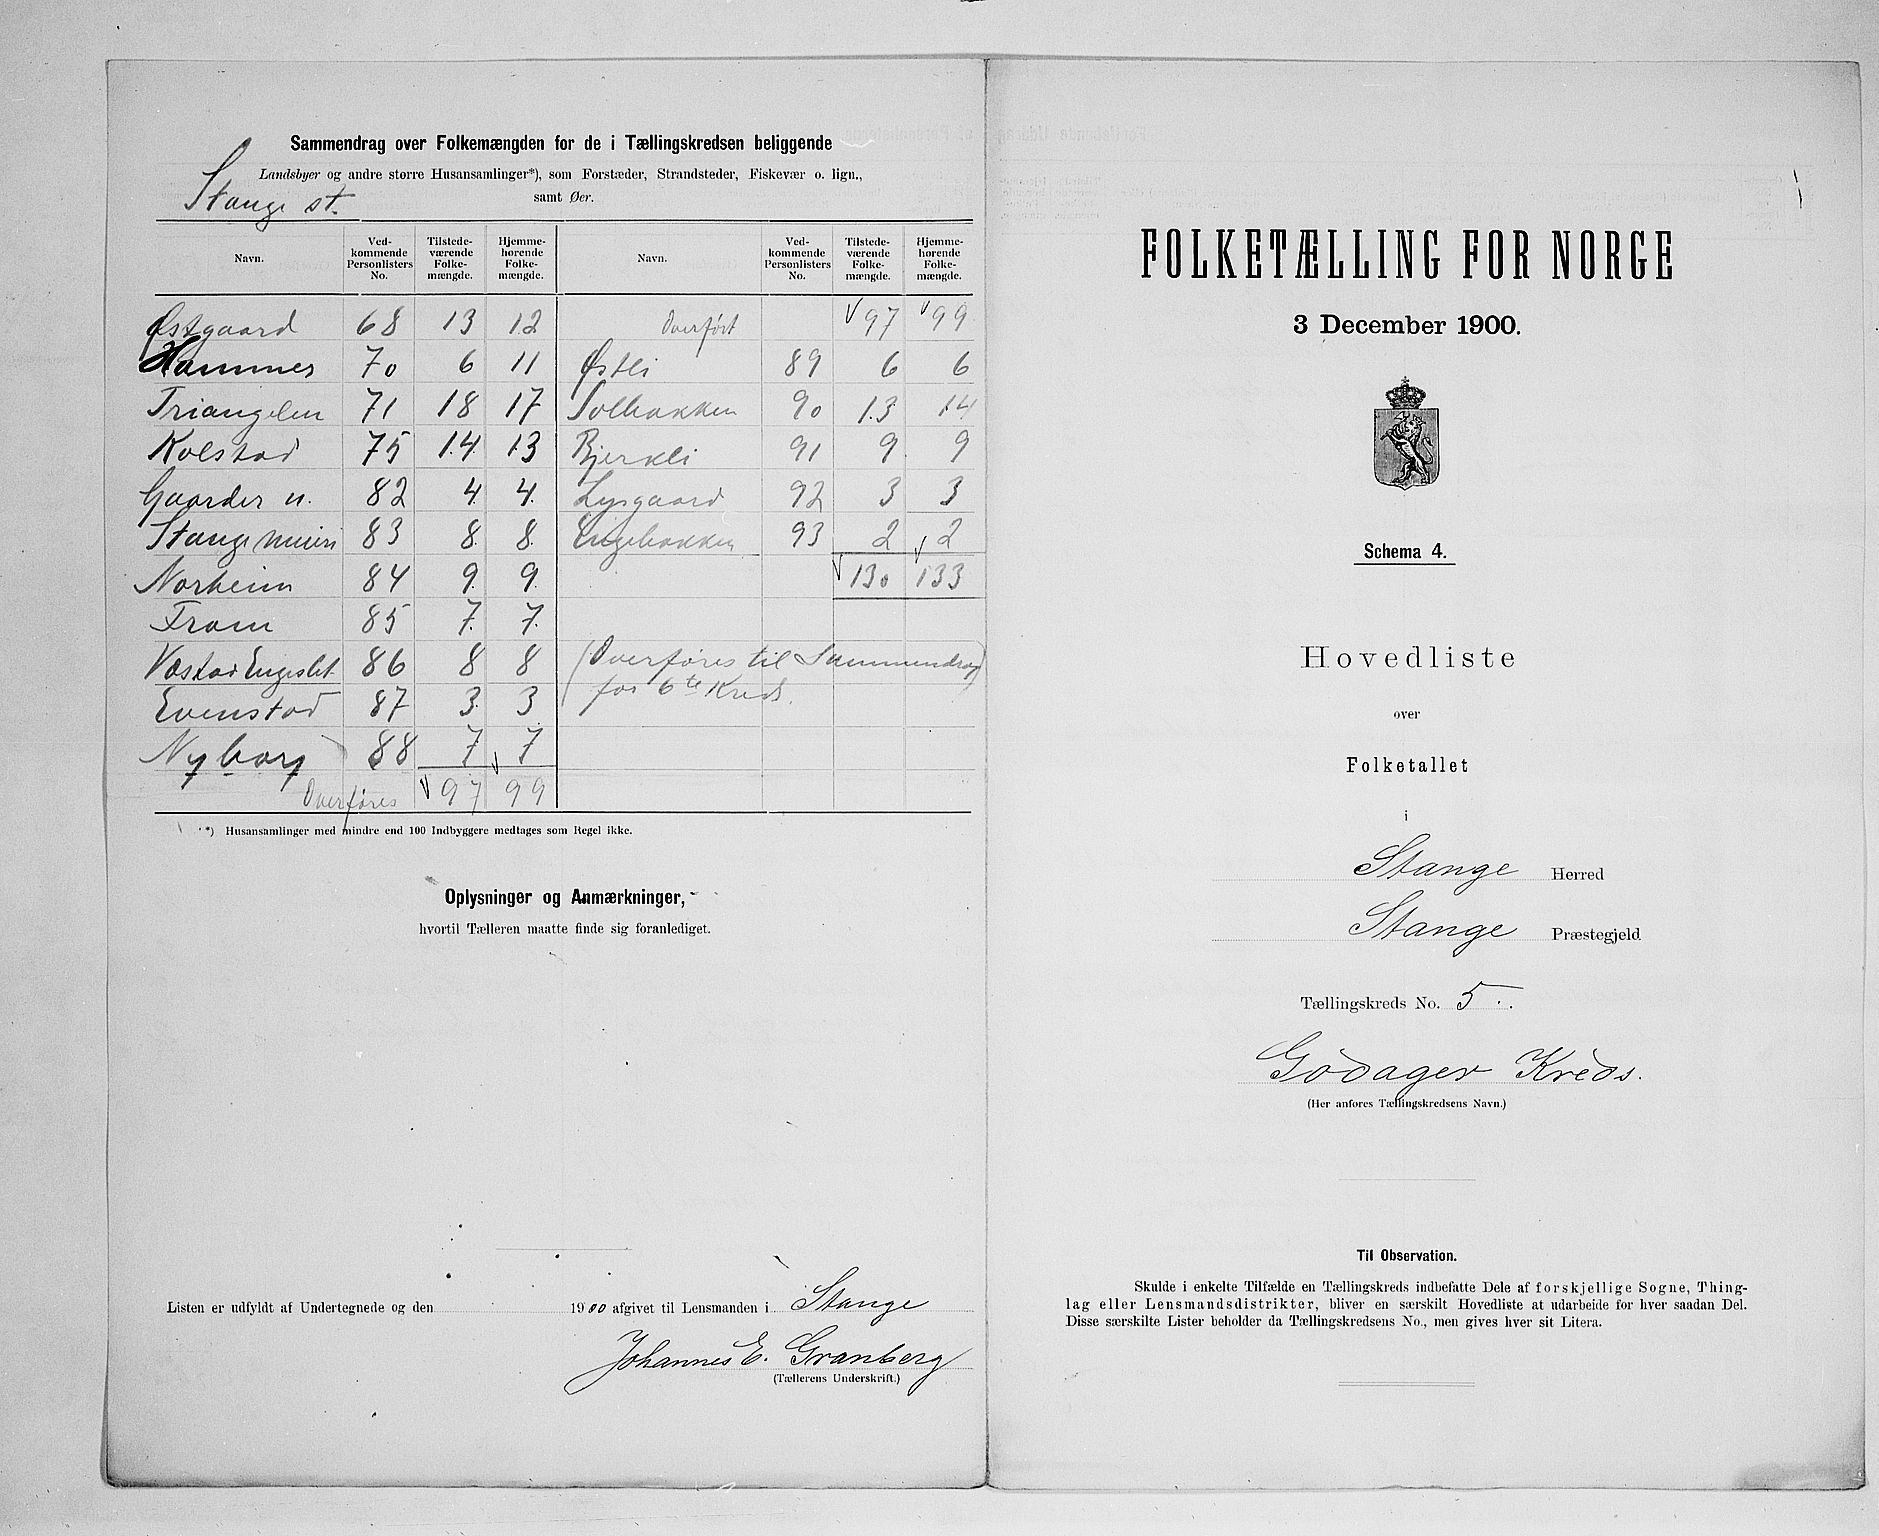 Sammendrag over Folkemængden for de i Tællingskredsen beliggende
Landsbyer og andre større Husansamlinger*), som Forstæder, Strandsteder, Fiskevær o. lign.,
samt Øer.
Stange st.
Navn. Ved-kommende Personlisters No. Tilstede-værende Folke-mængde. Hjemme-hørende Folke-mængde. Navn. Ved-kommende Personlisters No. Tilstede-værende Folke-mængde. Hjemme-hørende Folke-mængde.
Østgaard 68 13 12 Overført 97 99
Hamnes 70 6 11 Østli 89 6 6
Triangelen 71 18 17 Solbakken 90 13 14
Kolstad 75 14 13 Bjerkli 91 9 9
Gaarder u. 82 4 4 Lysgaard 92 3 3
Stange meieri 83 8 8 Engebakken 93 2 2
Norheim 84 9 9 130 133
Fram 85 7 7
Vestad Engeslet 86 8 8 (Overføres til Sammendrag
Evenstad 87 3 3 for 6te Kreds.)
Nyborg 88 7 7
Overføres 97 99
*) Husansamlinger med mindre end 100 Indbyggere medtages som Regel ikke.
Oplysninger og Anmærkninger,
hvortil Tælleren maatte finde sig foranlediget.
Listen er udfyldt af Undertegnede og den 1900 afgivet til Lensmanden i Stange
Johannes E. Granberg
(Tællerens Underskrift.)
FOLKETÆLLING FOR NORGE
3 December 1900.
Schema 4.
Hovedliste
over
Folketallet
i
Stange Herred
Stange Præstegjeld
Tællingskreds No. 5.
Godager Kreds.
(Her anføres Tællingskredsens Navn.)
Til Observation.
Skulde i enkelte Tilfælde en Tællingskreds indbefatte Dele af forskjellige Sogne, Thing-
lag eller Lensmandsdistrikter, bliver en særskilt Hovedliste at udarbeide for hver saadan Del.
Disse særskilte Lister beholder da Tællingskredsens No., men gives hver sit Litera.